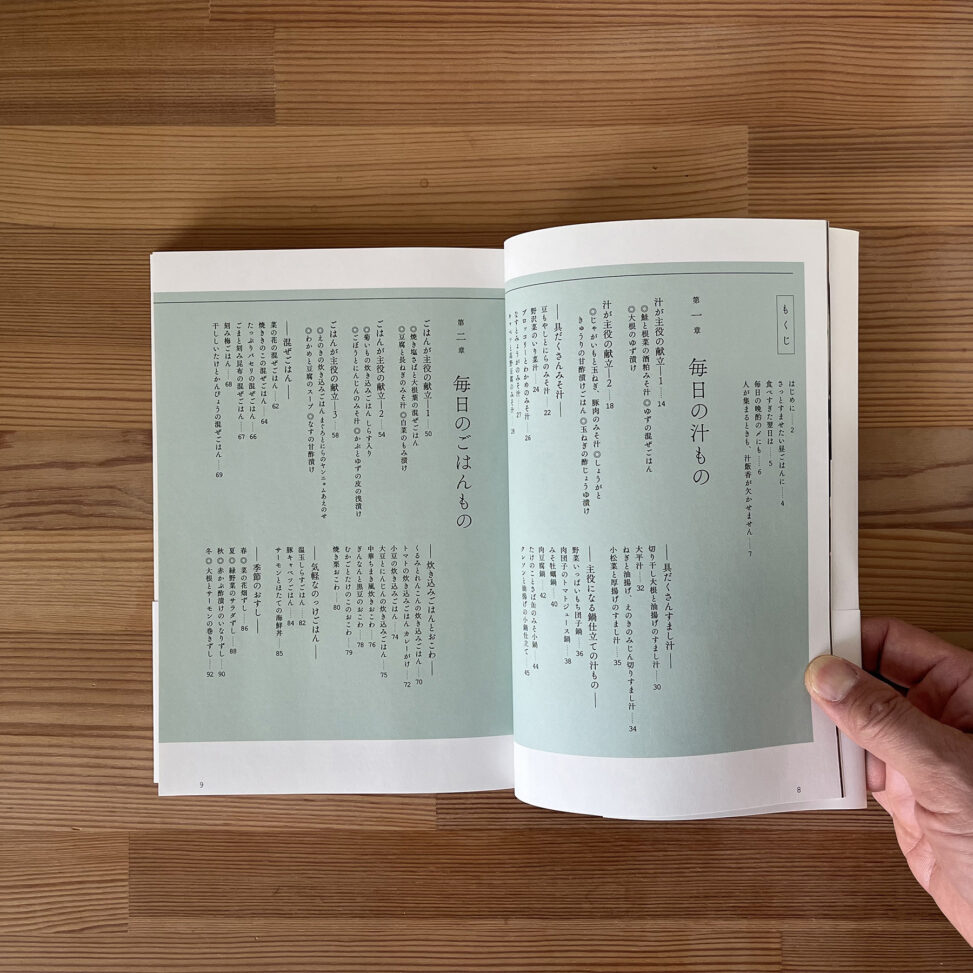 もくじ
はじめに――2
さっとすませたい昼ごはんに――4
食べすぎた翌日は――5
毎日の晩酌の〆にも――6
人が集まるときも、汁飯香が欠かせません――7
第一章 毎日の汁もの
汁が主役の献立―1……14
◎鮭と根菜の酒粕みそ汁 ◎ゆずの混ぜごはん
◎大根のゆず漬け
汁が主役の献立―2……18
◎じゃがいもと玉ねぎ、豚肉のみそ汁 ◎しょうがと
きゅうりの甘酢漬けごはん ◎玉ねぎの酢じょうゆ漬け
――具だくさんみそ汁――
豆もやしとにらのみそ汁……22
野沢菜のいり菜汁……24
ブロッコリーとわかめのみそ汁……26
なすとみょうがのみそ汁……27
キャベツと高野豆腐のみそ汁……28
――具だくさんすまし汁――
切り干し大根と油揚げのすまし汁……30
大平汁……32
ねぎと油揚げ、えのきのみじん切りすまし汁……34
小松菜と厚揚げのすまし汁……35
――主役になる鍋仕立ての汁もの――
野菜いっぱいいもち団子鍋……36
肉団子のトマトジュース鍋……38
みそ牡蠣鍋……40
肉豆腐鍋……42
たけのことさば缶のみそ小鍋……44
クレソンと油揚げの小鍋仕立て……45
8
第二章 毎日のごはんもの
ごはんが主役の献立―1……50
◎焼き塩さばと大根葉の混ぜごはん
◎豆腐と長ねぎのみそ汁 ◎白菜のもみ漬け
ごはんが主役の献立―2……54
◎菊いもの炊き込みごはん しらす入り
◎ごぼうとにんじんのみそ汁 ◎かぶとゆずの皮の浅漬け
ごはんが主役の献立―3……58
◎えのきの炊き込みごはん まぐろとにらのヤンニョムあえのせ
◎わかめと豆腐のスープ ◎なすの甘酢漬け
――混ぜごはん――
菜の花の混ぜごはん……62
焼ききのこの混ぜごはん……64
たっぷりパセリの混ぜごはん……66
ごまと刻み昆布の混ぜごはん……67
刻み梅ごはん……68
干ししいたけとかんぴょうの混ぜごはん……69
――炊き込みごはんとおこわ――
くるみとれんこんの炊き込みごはん……70
トマトの炊き込みごはん カレーがけ……72
小豆の炊き込みごはん……74
大豆とにんじんの炊き込みごはん……75
中華ちまき風炊きおこわ……76
ぎんなんと黒豆のおこわ……78
むかごとたけのこのおこわ……79
焼き栗おこわ……80
――気軽なのっけごはん――
温玉しらすごはん……82
豚キャベツごはん……84
サーモンとほたての海鮮丼……85
――季節のおすし――
春 ◎菜の花烟ずし……86
夏 ◎緑野菜のサラダずし……88
秋 ◎赤かぶ酢漬けのいなりずし……90
冬 ◎大根とサーモンの巻きずし……92
9